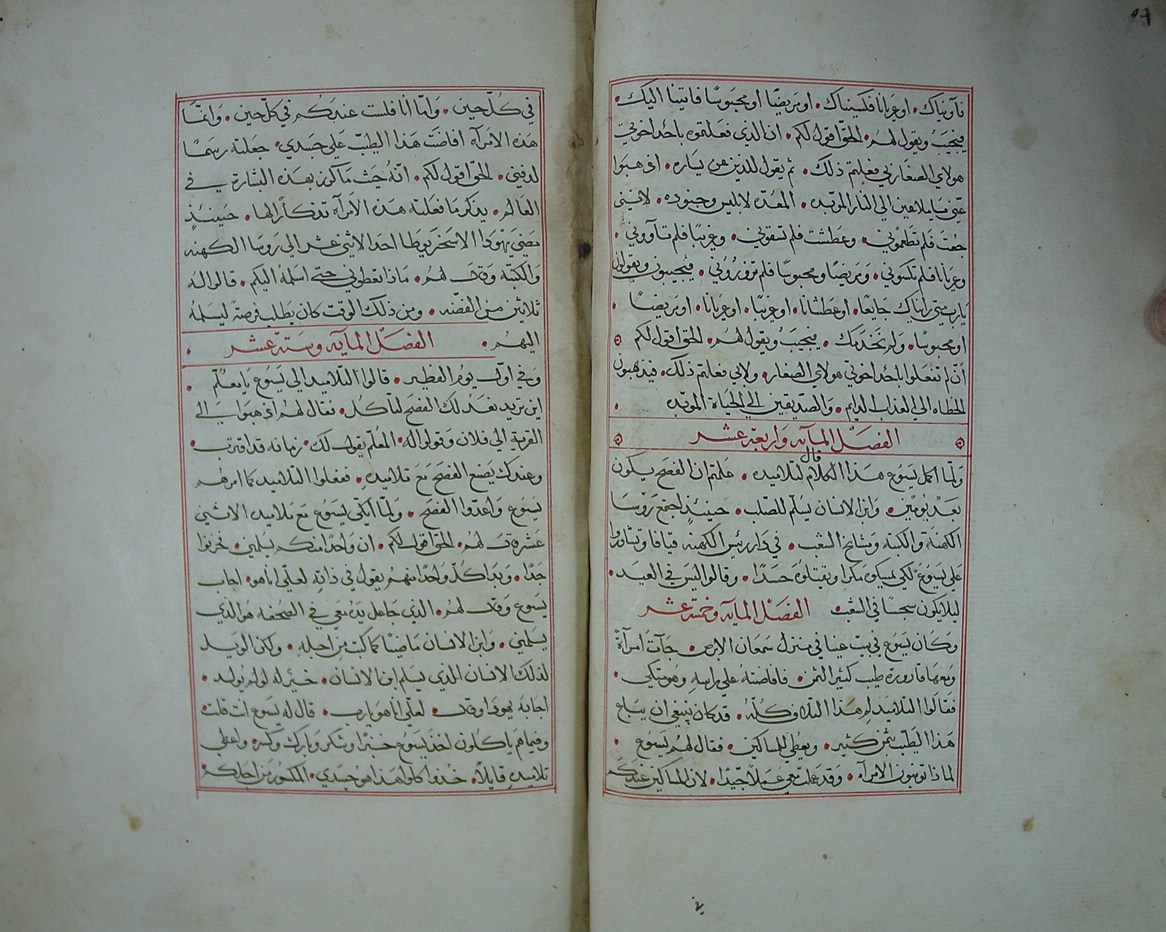 فآويناك. او عريانا فكسيناك. او مريضا او محبوسا فاتينا اليك.
فيجيب ويقول لهم. الحق اقول لكم. ان الذي فعلتموه باحد اخوتي
هولاي الصغار بي فعلتم ذلك. ثم يقول للذين عن يساره. اذهبوا
عني يا ملاعين الي النار الموبده. المعده لابليس وجنوده. لانني
جعت فلم تطعموني. وعطشت فلم تسقوني. وغريبا فلم تآووني.
وعريانا فلم تكسوني. ومريضا ومحبوسا فلم تزوروني. فيجيبون ويقولون
يارب متي رايناك جايعا. او عطشانا. او غريبا. او عريانا. او مريضا.
او محبوسا. ولم نخدمك. فيجيب ويقول لهم. الحق اقول لكم
ان لم تفعلوا باحد اخوتي هولاي الصغار. ولا بي فعلتم ذلك. فيذهبون
الخطاه الي العذاب الدايم. والصديقين الي الحياة الموبده.
الفصل المايه واربعة عشر
ولما اكمل يسوع هذا الكلام قال لتلاميذه. علمتم ان الفصح يكون
بعد يومين. وابن الانسان يسلم للصلب. حينيذ اجتمع روسا
الكهنه والكتبه ومشايخ الشعب. في دار ريس الكهنه قيافا وتشاوروا
علي يسوع لكي يمسكوه مكرا ويقتلوه حسدا. وقالوا ليس في العيد.
ليلا يكون سجسا في الشعب الفصل المايه وخمسة عشر
وكان يسوع في بيت عنيا في منزل سمعان الابرص. جآت امرآة
ومعها قارورة طيب كثير الثمن. فافاضته علي راسه وهو متكي.
فقالوا التلاميذ لم هذا التلاف كله. قد كان ينبغي ان يباع
هذا الطيب بثمن كثير. ويعطي للمساكين. فقال لهم يسوع
لماذا تونبون الامرآه. وقد عملت معي عملا جيدا. لان المساكين عندكم
في كل حين. واما انا فلست عندكم في كل حين. وانما
هذه الامرآه افاضت هذا الطيب علي جسدي. جعلته رسما
لدفني. الحق اقول لكم. انه حيث ما كرز بهذه البشارة في
العالم. يذكر ما فعلته هذه الامرآه تذكارا لها. حينيذ
مضي يهوذا الاسخريوطا احد الاثني عشر الي روسا الكهنه
والكتبه وقال لهم. ماذا تعطوني حتي اسلمه اليكم. قالوا له
ثلاثين من الفضه. ومن ذلك الوقت كان يطلب فرصة ليسلمه
اليهم. الفصل المايه وستة عشر
وفي اول يوم الفطير. قالوا التلاميذ الي يسوع يا معلم
اين تريد نعد لك الفصح لتاكل. فقال لهم اذهبوا الي
القرية الي فلان وقولوا له. المعلم يقول لك. زمانه قد اقترب.
وعندك يصنع الفصح مع تلاميذه. ففعلوا التلاميذ كما امرهم
يسوع واعدوا الفصح. ولما اتكي يسوع مع تلاميذه الاثني
عشره قال لهم. الحق اقول لكم. ان واحدا منكم يسلمني. فحزنوا
جدا. وبدا كل واحدا منهم يقول في ذاته لعلي انا هو. اجاب
يسوع وقال لهم. الذي جاعل يده معي في الصحفه هو الذي
يسلمني. وابن الانسان ماضيا كما كتب من اجله. ولكن الويل
لذلك الانسان الذي يسلم ابن الانسان. خير له لو لم يولد.
اجابه يهوذا وقال. لعلي انا هو يارب. قال له يسوع انت قلت
وفيما هم ياكلون اخذ يسوع خبزا وشكر وبارك وكسر. واعطي
تلاميذه قايلا. خذوا كلوا هذا هو جسدي. المكسور من اجلكم